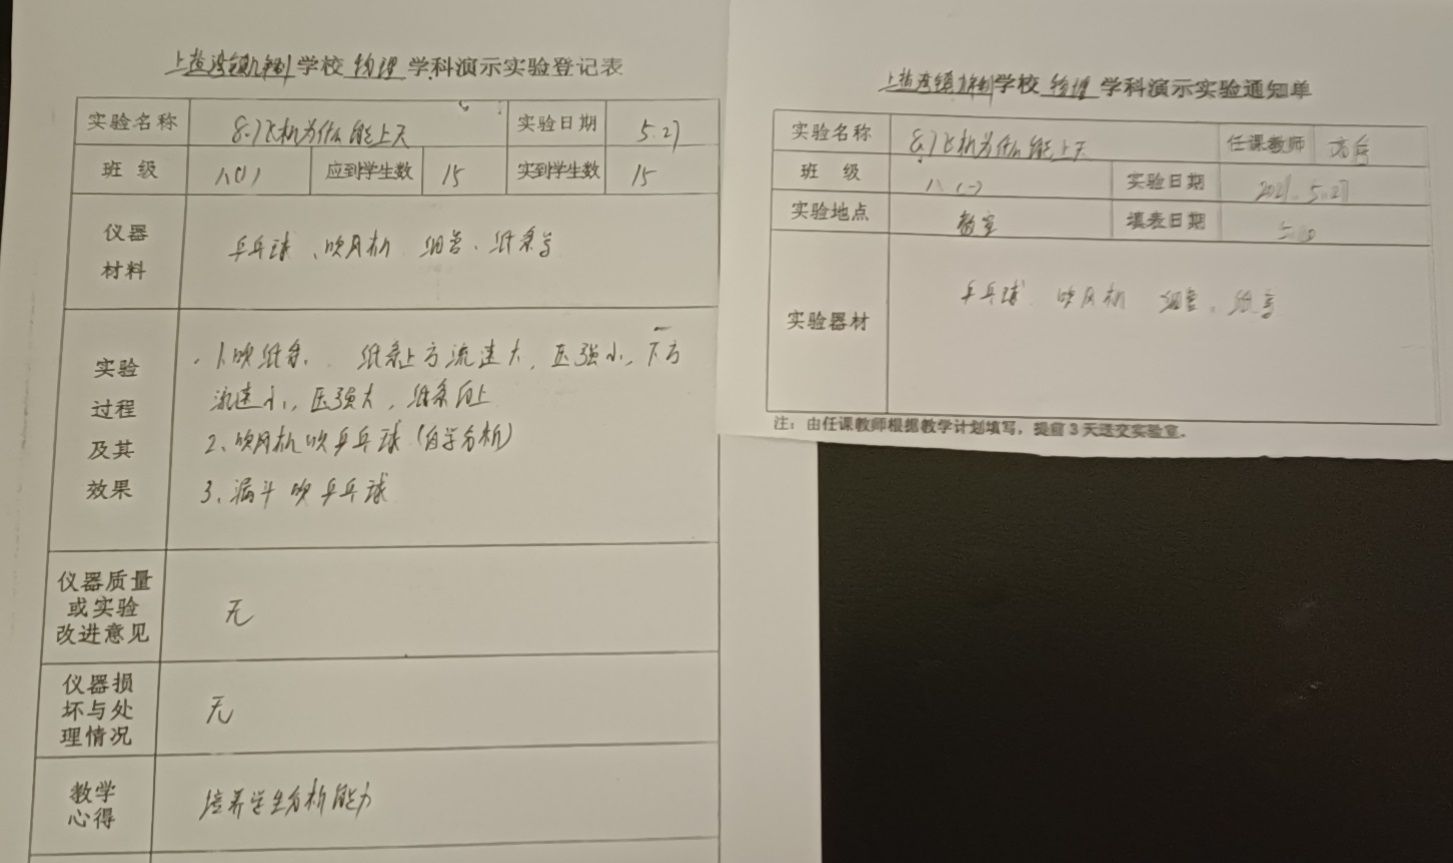 学校 物理 学科演示实验登记表
实验名称 8.7飞机为什么能上天 实验日期 5.27
班 级 八(1) 应到学生数 15 实到学生数 15
仪器
材料
乒乓球、吹风机 细管、纸条等
实验
过程
及其
效果
1.吹纸条. 纸条上方流速大,压强小,下方
流速小,压强大,纸条向上
2、吹风机吹乒乓球(自学分析)
3、漏斗吹乒乓球
仪器质量
或实验
改进意见
无
仪器损
坏与处
理情况
无
教学
心得
培养学生分析能力
学校 物理 学科演示实验通知单
实验名称 8.7飞机为什么能上天 任课教师
班 级 八(一) 实验日期 2021.5.27
实验地点 教室 填表日期
实验器材 乒乓球 吹风机 细管、纸
注：由任课教师根据教学计划填写，提前3天送交实验室。